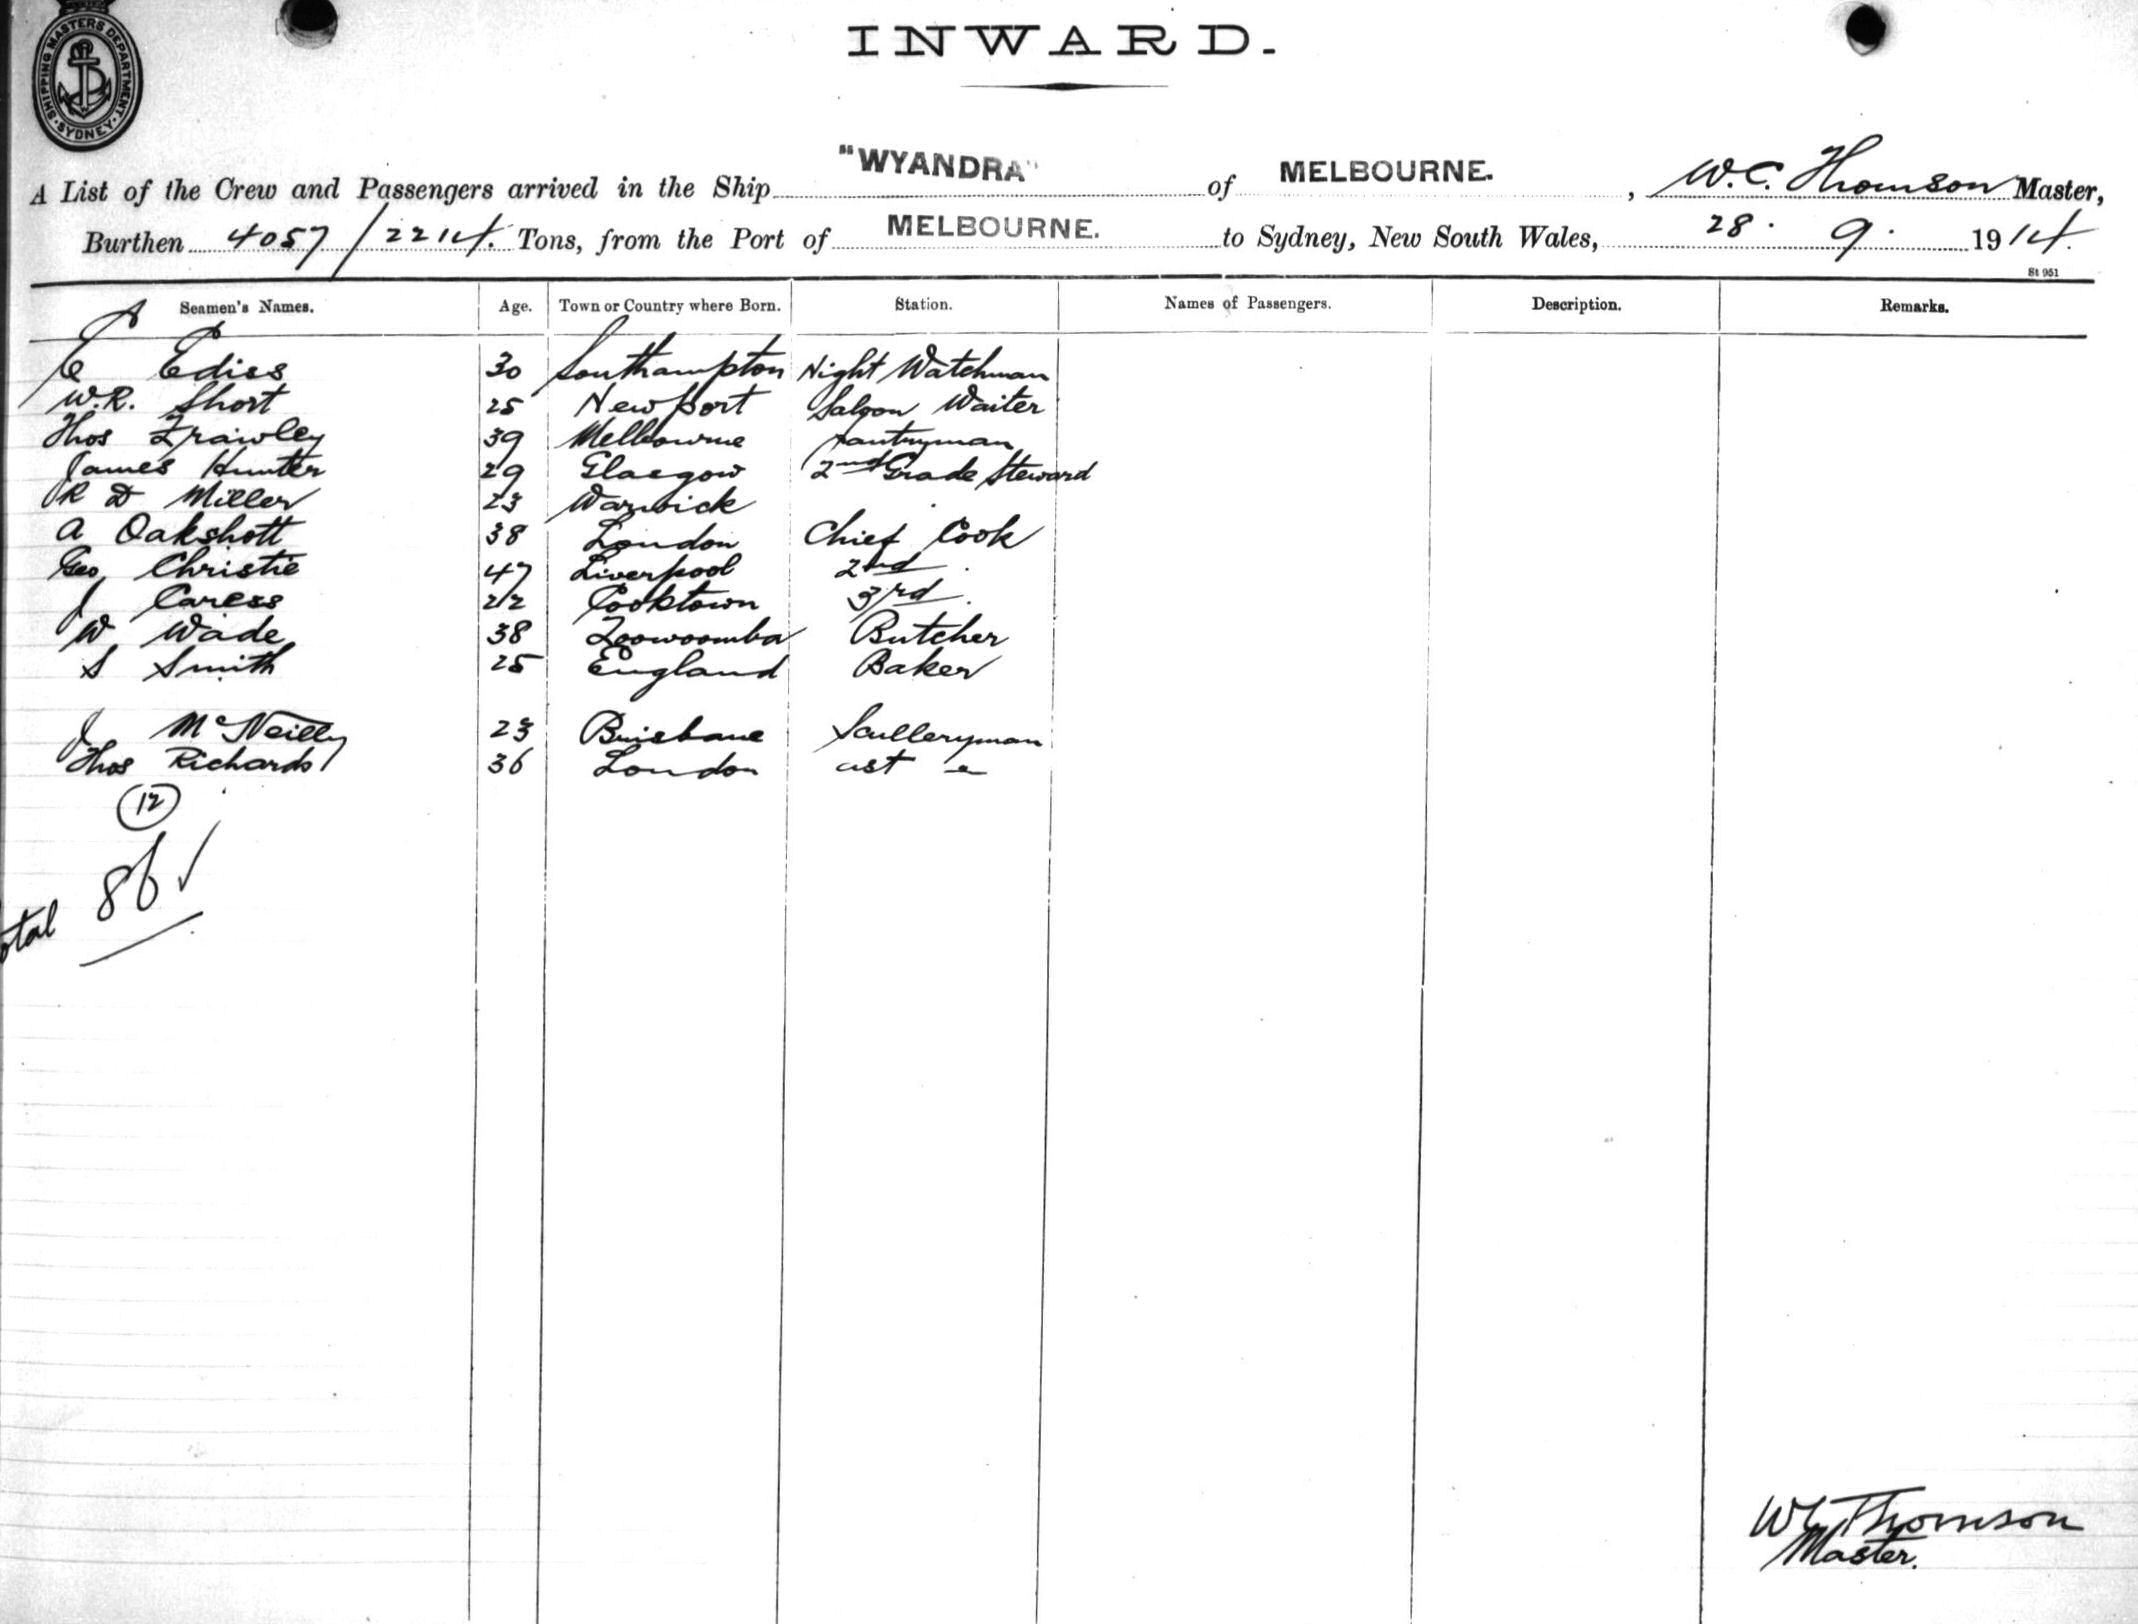 SHIPPING MASTERS DEPARTMENT. SYDNEY
INWARD.
A List of the Crew and Passengers arrived in the Ship "WYANDRA" of MELBOURNE. , W.C. Thomson Master,
Burthen 4057/2214. Tons, from the Port of MELBOURNE. to Sydney, New South Wales, 28. 9. 1914.
St 951
Seamen's Names. Age. Town or Country where Born. Station. Names of Passengers. Description. Remarks.
E Edies 30 Southampton Night Watchman
W.R. Short 25 Newport Saloon Waiter
Thos Frawley 39 Melbourne Pantryman
James Hunter 29 Glasgow 2nd Grade Steward
R D Miller 23 Warwick
A Oakshott 38 London Chief Cook
Geo Christie 47 Liverpool 2nd
J Caress 22 Cooktown 3rd
W Wade 38 Toowoomba Butcher
S Smith 25 England Baker
J McNeilly 23 Brisbane Sculleryman
Thos Richards 36 London ast
12
Total 86 ✓
WC Thomson
Master.